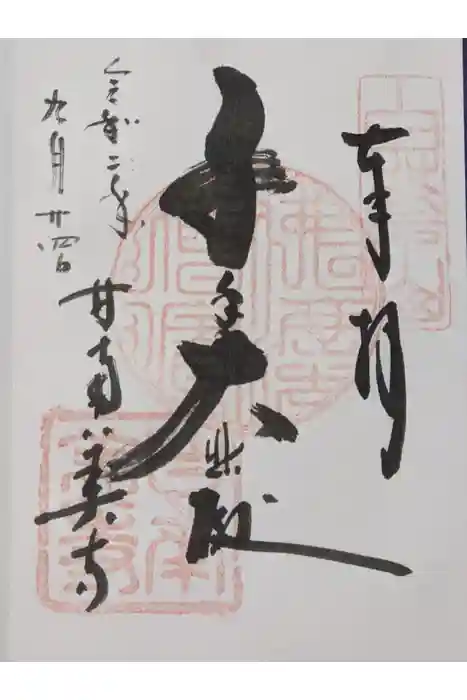 奉拝
千手大悲殿
甘南美寺
令和二年
九月廿四日